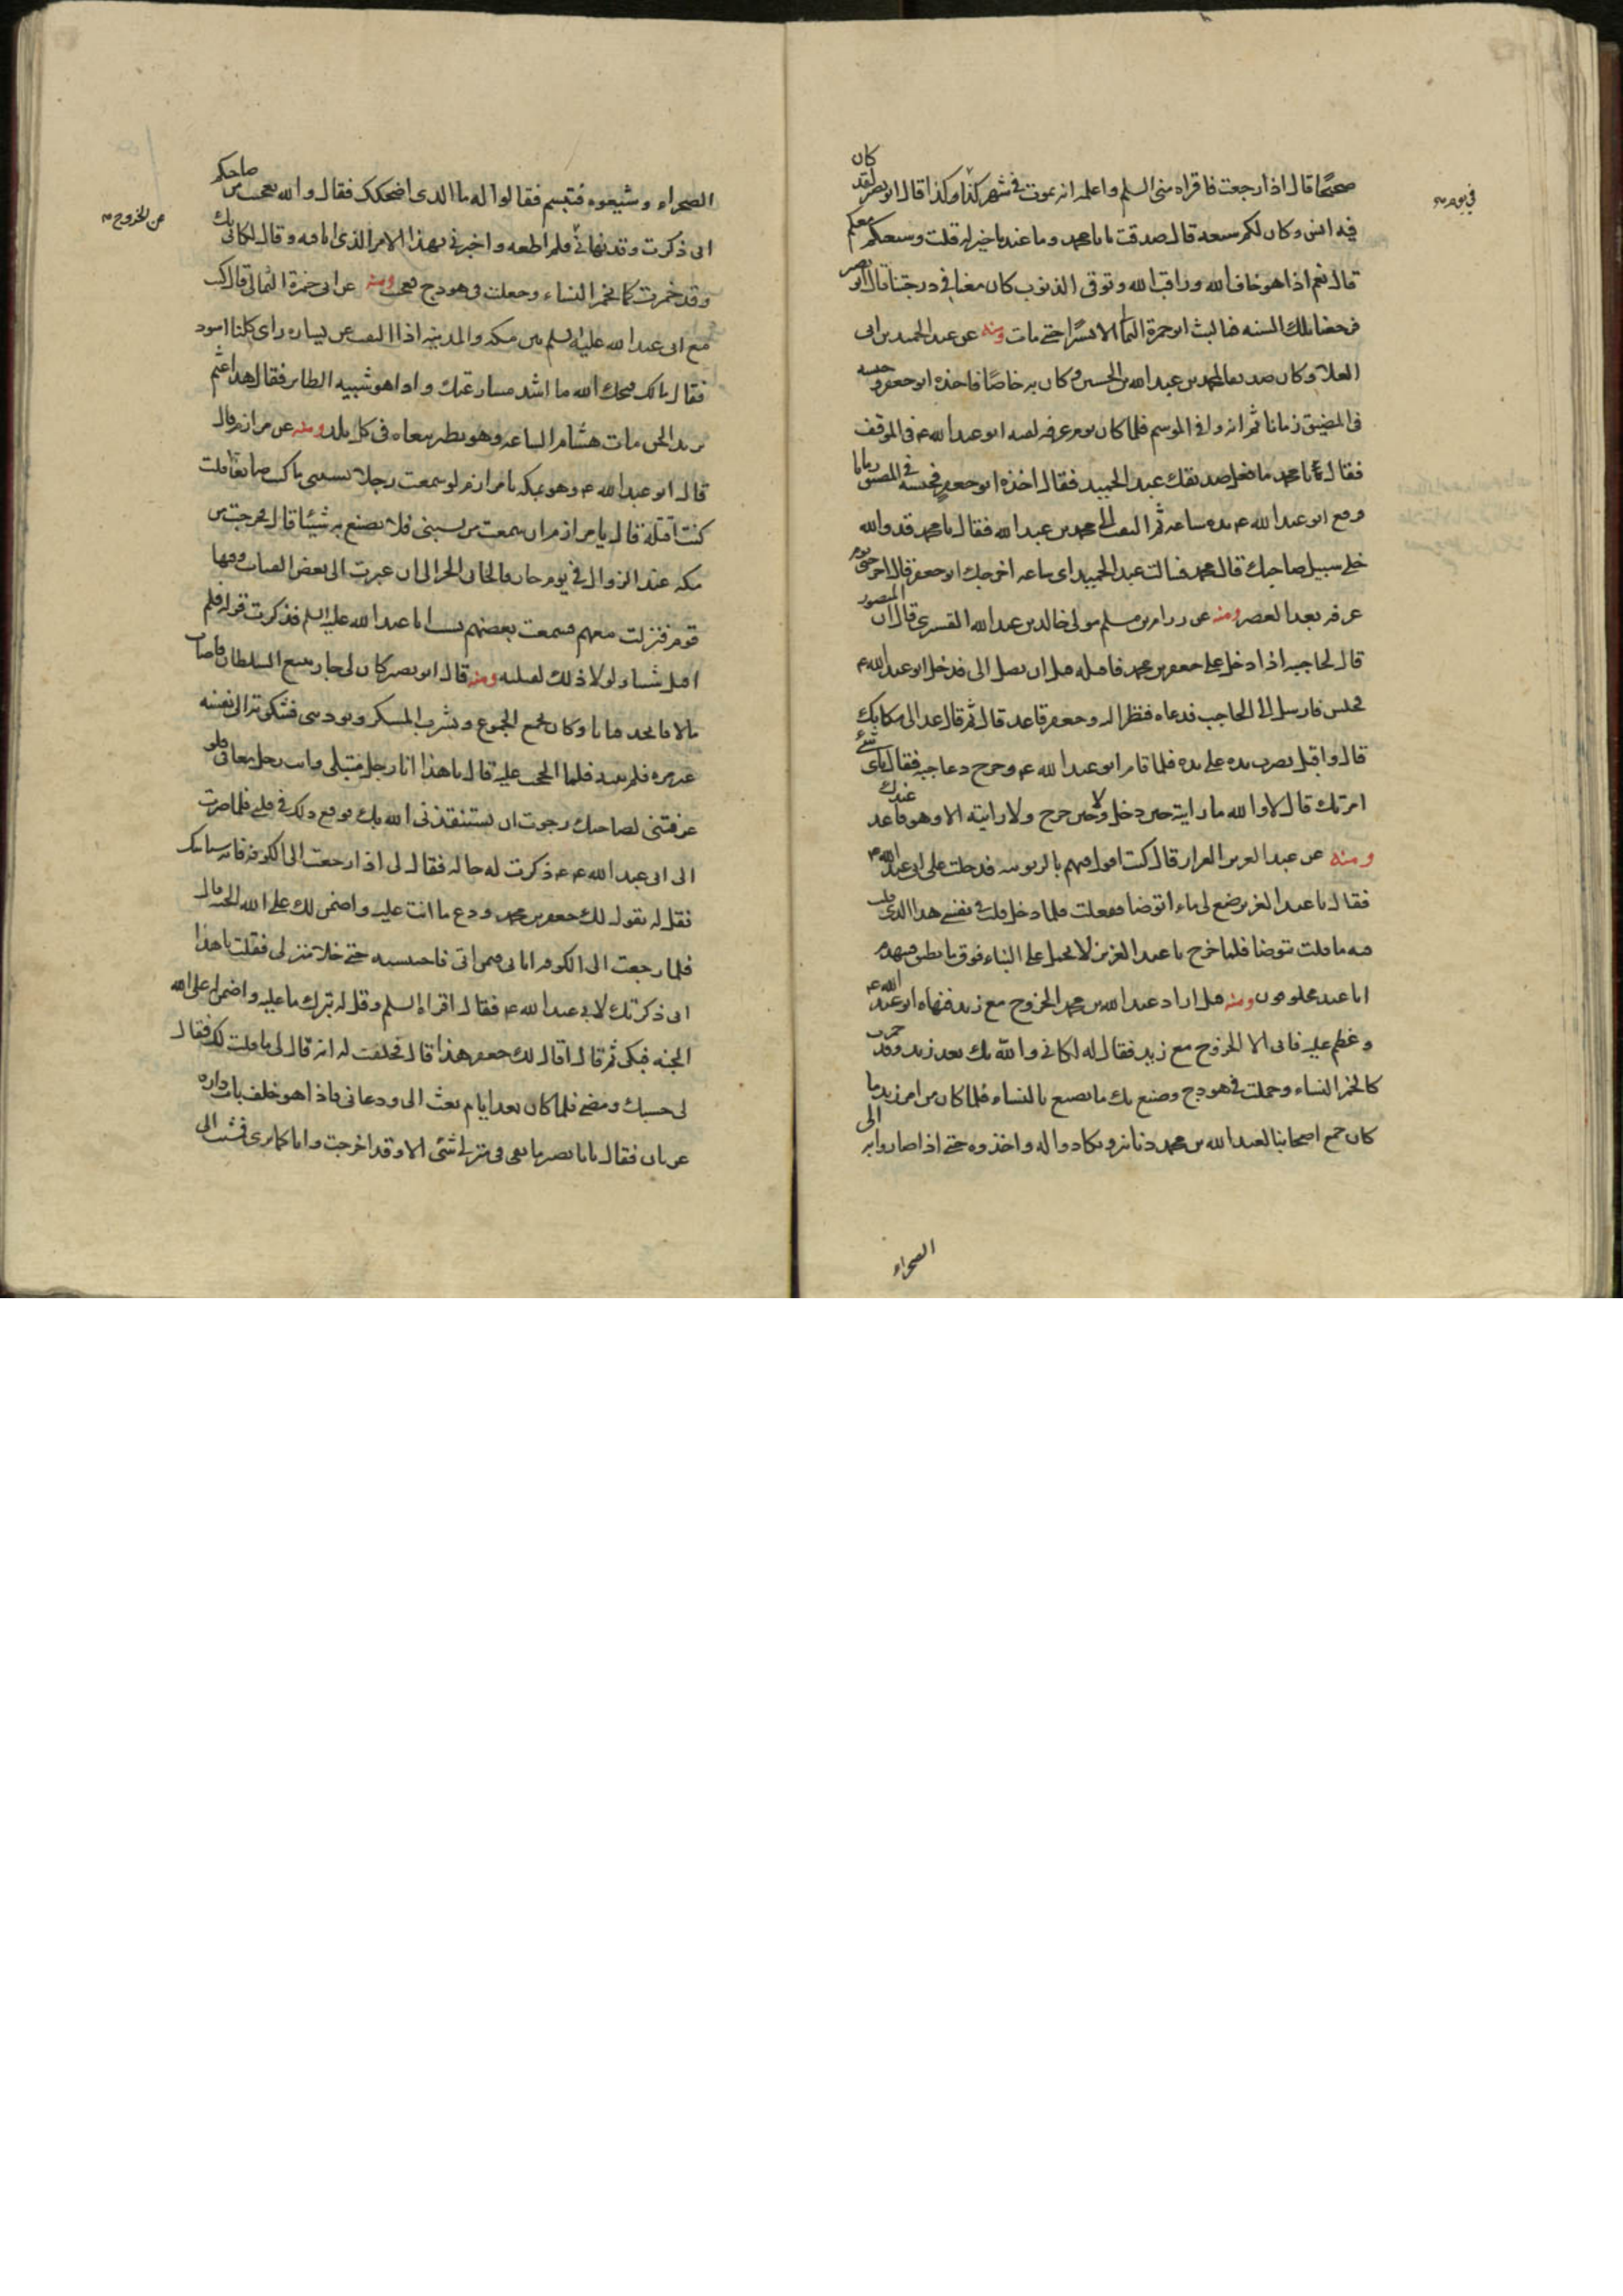 صحيحًا قال اذا رجعت فاقراه منى السلم واعلمه انه يموت فى شهر كذا وكذا قال ابو بصير لقد كان
فى يوم
فيه انس وكان لكم شيعه قال صدقت يابا محمد وما عندنا خير له قلت وشيعتكم معكم
قال نعم اذا هو خاف الله وراقب الله وتوقى الذنوب كان معنا فى درجتنا قال ابو بصير
فرجعنا تلك السنه فما لبث ابو حمزة الثمالى الا يسيرًا حتى مات ومنه عن عبد الحميد بن ابى
العلا وكان صديقا لمحمد بن عبد الله بن الحسين وكان به خاصًا فاخذه ابو جعفر وحبسه
فى المضيق زمانا ثم انه وافى الموسم فلما كان يوم عرفه لقيه ابو عبد الله ع فى الموقف
فقال يابا محمد ما فعل صديقك عبد الحميد فقال اخذه ابو جعفر فحبسه فى المضيق زمانا
ورفع ابو عبد الله ع يده ساعه ثم التفت الى محمد بن عبد الله فقال يا محمد قد والله
خلى سبيل صاحبك قال محمد فسالت عبد الحميد اى ساعه اخرجك ابو جعفر قال اخرجنى يوم
عرفه بعد العصر ومنه عن رزام بن مسلم مولى خالد بن عبد الله القسرى قال ان المنصور
قال لحاجبه اذا دخل على جعفر بن محمد فاقتله قبل ان يصل الى فدخل ابو عبد الله ع
فجلس فارسل الى الحاجب فدعاه فنظر اليه وجعفر قاعد قال ثم قال عد الى مكانك
قال واقبل يضرب يده على يده فلما قام ابو عبد الله ع وخرج دعا حاجبه فقال باى شئ
امرتك قال لا والله ما رايته حين دخل ولا حين خرج ولا رايته الا وهو قاعد عندك
ومنه عن عبد العزيز القزاز قال كنت اقول فيهم بالربوبيه فدخلت على ابى عبد الله ع
فقال يا عبد العزيز ضع لى ماء اتوضا ففعلت فلما دخل قلت فى نفسى هذا الذى قلت
فيه ما قلت يتوضا فلما خرج يا عبد العزيز لا تحمل على البناء فوق ما يطيق فيهدم
انا عبيد مخلوقون ومنه قيل اراد عبد الله بن محمد الخروج مع زيد فنهاه ابو عبد الله ع
وعظم عليه فابى الا الخروج مع زيد فقال له لكانى والله بك بعد زيد وقد خمرت
كما تخمر النساء وحملت فى هودج وصنع بك ما يصنع بالنساء فلما كان من امر زيد ما
كان جمع اصحابنا لعبد الله بن محمد دنانير وتكاروا له واخذوه حتى اذا صاروا به الى
الصحراء
الصحراء وشيعوه فتبسم فقالوا له ما الذى اضحكك فقال والله تعجبت من صاحبكم
عن الخروج
انى ذكرت وقد نهانى فلم اطعه واخبرنى بهذا الامر الذى انا فيه وقال لكانى بك
وقد خمرت كما تخمر النساء وجعلت فى هودج فعجبت ومنه عن ابى حمزة الثمالى قال كنت
مع ابى عبد الله عليه السلم بين مكه والمدينه اذا التفت عن يساره راى كلبا اسود
فقال مالك قبحك الله ما اشد مسارعتك واذا هو شبيه الطاير فقال هذا عثم
بريد الجن مات هشام الساعه وهو يطير ينعاه فى كل بلد ومنه عن مرازم قال
قال ابو عبد الله ع وهو بمكه يا مرازم لو سمعت رجلا يسبنى ما كنت صانعًا قلت
كنت اقتله قال يا مرازم ان سمعت من يسبنى فلا تصنع به شيئا قال فخرجت من
مكه عند الزوال فى يوم حار فالجانى الحر الى ان عبرت الى بعض القباب وفيها
قوم فنزلت معهم فسمعت بعضهم يسب ابا عبد الله عليه السلم فذكرت قوله فلم
اقل شيئا ولولا ذلك لقتلته ومنه قال ابو بصير كان لى جار يتبع السلطان فاصاب
مالا فاتخذ قيانا وكان يجمع الجموع ويشرب المسكر ويوذينى فشكوته الى نفسه
غير مره فلم ينته فلما الححت عليه قال يا هذا انا رجل مبتلى وانت رجل معافى فلو
عرفتنى لصاحبك رجوت ان يستنقذنى الله بك فوقع ذلك فى قلبى فلما صرت
الى ابى عبد الله ع ذكرت له حاله فقال لى اذا رجعت الى الكوفه فانه سياتيك
فقل له يقول لك جعفر بن محمد ودع ما انت عليه واضمن لك على الله الجنه قال
فلما رجعت الى الكوفه اتانى فيمن اتى فاحتبسته حتى خلا منزلى فقلت يا هذا
انى ذكرتك لابى عبد الله ع فقال اقراه السلم وقل له يترك ما عليه واضمن له على الله
الجنه فبكى ثم قال اقال لك جعفر هذا قال فحلفت له انه قال لى ما قلت لك فقال
لى حسبك ومضى فلما كان بعد ايام بعث الى ودعانى فاذا هو خلف باب داره
عريان فقال يابا بصير ما بقى فى منزلى شئ الا وقد اخرجت وانا كما ترى فمشيت الى